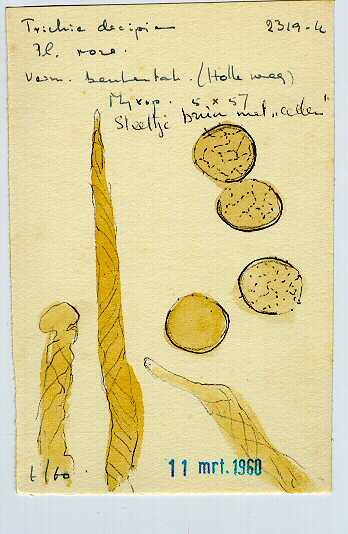 Trichia decipien 2319-4
Fl. rose.
Verm. beukentak. (Holle weg)
Myxop. 5 x 57
Steeltje bruin met „cellen"
t/60.
11 mrt. 1960